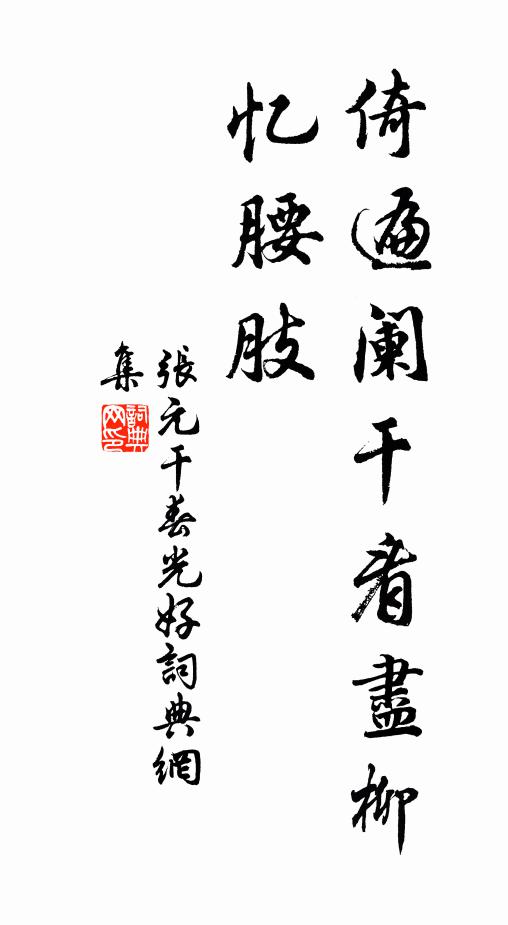 倚遍阑干看盡柳
忆腰肢
張元干春光好詞典網
集
詞典
网印